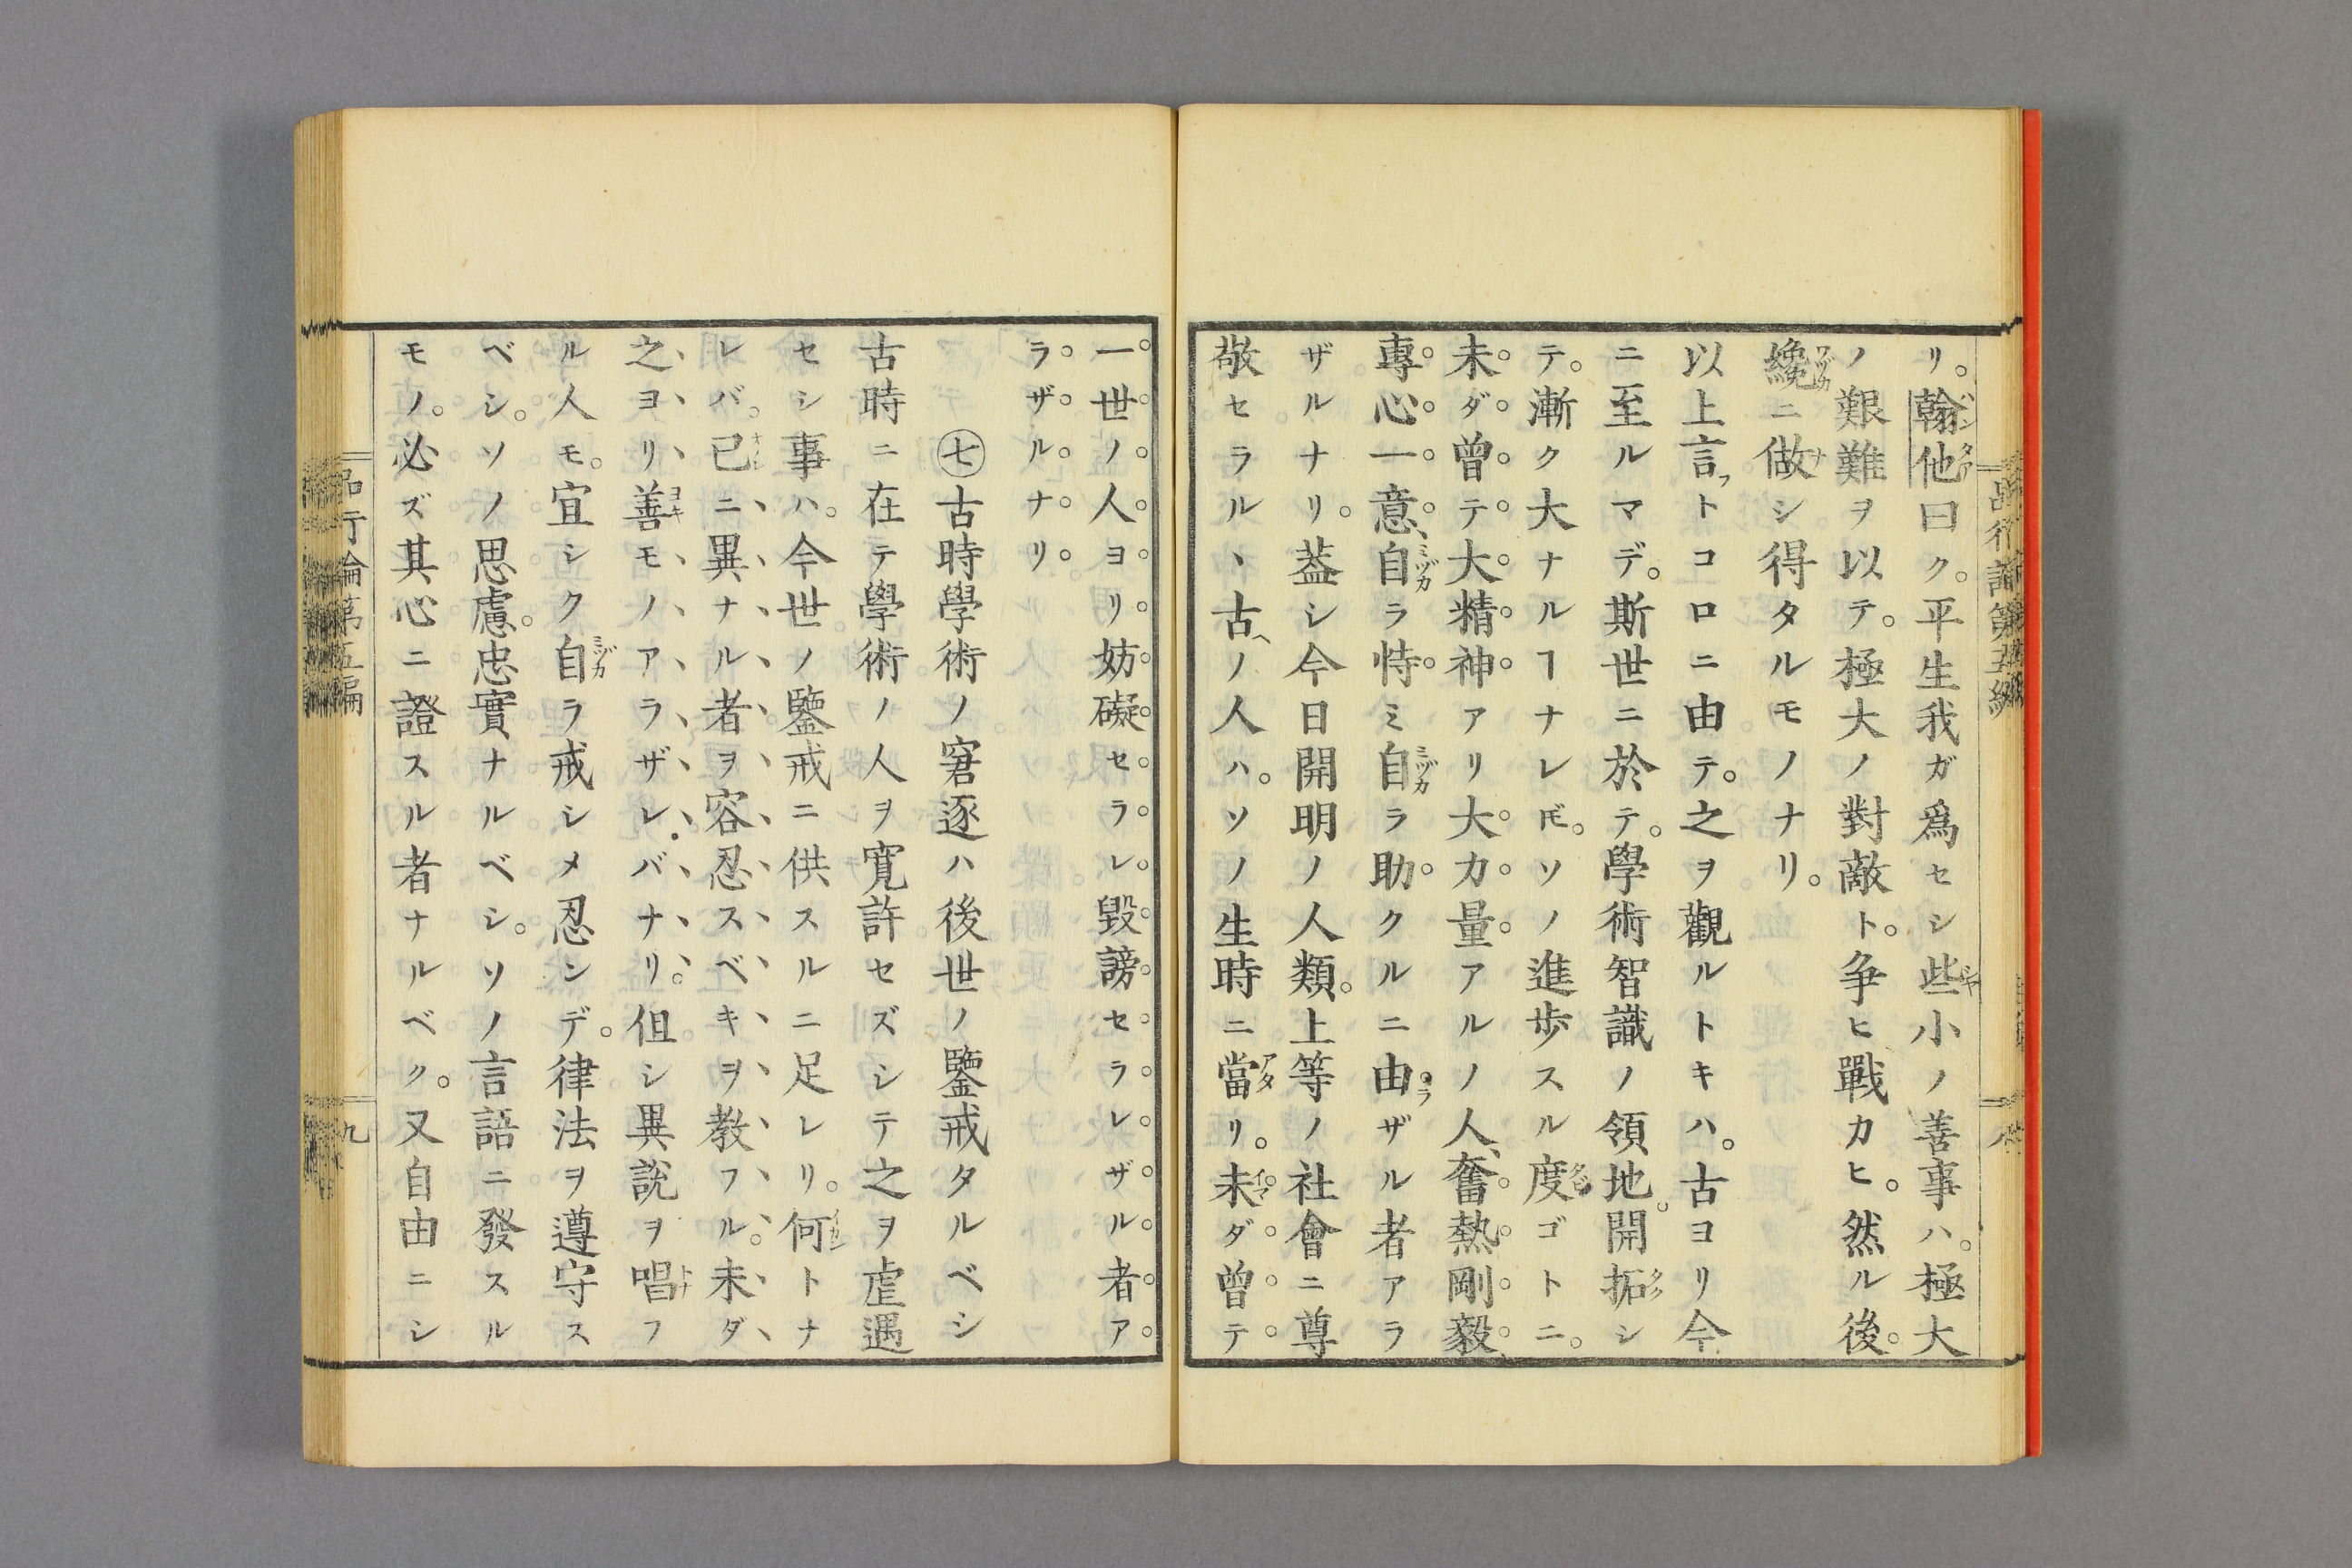 リ。翰他曰ク。平生我ガ爲セシ些小ノ善事ハ。極大
ノ艱難ヲ以テ。極大ノ對敵ト。争ヒ戰カヒ。然ル後。
纔ニ做シ得タルモノナリ。
以上言フトコロニ由テ。之ヲ觀ルトキハ。古ヨリ今
ニ至ルマデ。斯世ニ於テ。學術智識ノ領地。開拓シ
テ。漸ク大ナルヿナレ𪜈。ソノ進歩スル度ゴトニ。
未ダ曾テ大精神アリ大力量アルノ人、奮熱剛毅、
專心一意、自ラ恃ミ自ラ助クルニ由ラザル者アラ
ザルナリ。葢シ今日開明ノ人類。上等ノ社會ニ尊
敬セラルヽ古ヘノ人ハ。ソノ生時ニ當リ。未ダ曾テ
一世ノ人ヨリ妨礙セラレ毀謗セラレザル者ア
ラザルナリ
㊆古時學術ノ窘逐ハ後世ノ鑒戒タルベシ
古時ニ在テ學術ノ人ヲ寛許セズシテ之ヲ虐遇
セシ事ハ。今世ノ鑒戒ニ供スルニ足レリ。何トナ
レバ。已ニ異ナル者ヲ容忍スベキヲ教フル。未ダ
之ヨリ善モノアラザレバナリ。但シ異説ヲ唱フ
ル人モ。宜シク自ラ戒シメ忍ンデ。律法ヲ遵守ス
ベシ。ソノ思慮。忠實ナルベシ。ソノ言語ニ發スル
モノ。必ズ其心ニ證スル者ナルベク。又自由ニシ
品行論第五編
九